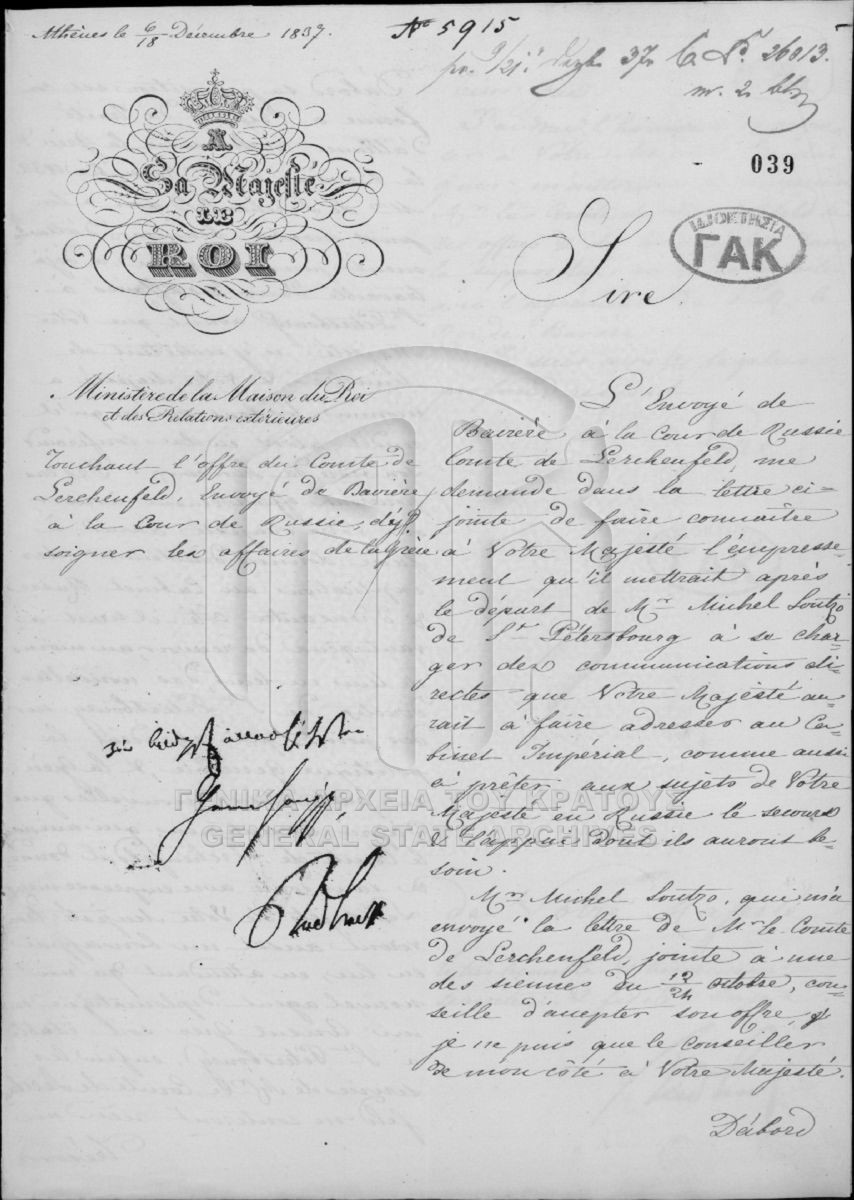 Athènes le 6/18 Décembre 1837.
No 5915
pr. 9/21 Dezbr 37. 26813.
039
A
Sa Majesté
LE
ROI
ΙΔΙΟΚΤΗΣΙΑ
ΓΑΚ
Sire.
Ministère de la Maison du Roi
et des Relations extérieures
Touchant l'offre du Comte de
Lerchenfeld, Envoyé de Bavière
à la Cour de Russie, d'y
soigner les affaires de la Grèce
L'Envoyé de
Bavière à la Cour de Russie
Comte de Lerchenfeld, me
demande dans la lettre ci-
jointe de faire connaître
à Votre Majesté l'empresse-
ment qu'il mettrait après
le départ de Mr Michel Soutzo
de St Pétersbourg à se char-
ger des communications di-
rectes que Votre Majesté au-
rait à faire adresser au Ca-
binet Impérial, comme aussi
à prêter aux sujets de Votre
Majesté en Russie le secours
& l'appui dont ils auront be-
soin.
Mr Michel Soutzo, qui m'a
envoyé la lettre de Mr le Comte
de Lerchenfeld, jointe à une
des siennes du 12/24 octobre, con-
seille d'accepter son offre, &
je ne puis que le conseiller
de mon côté à Votre Majesté.
D'abord
ΓΕΝΙΚΑ ΑΡΧΕΙΑ ΤΟΥ ΚΡΑΤΟΥΣ
GENERAL STATE ARCHIVES